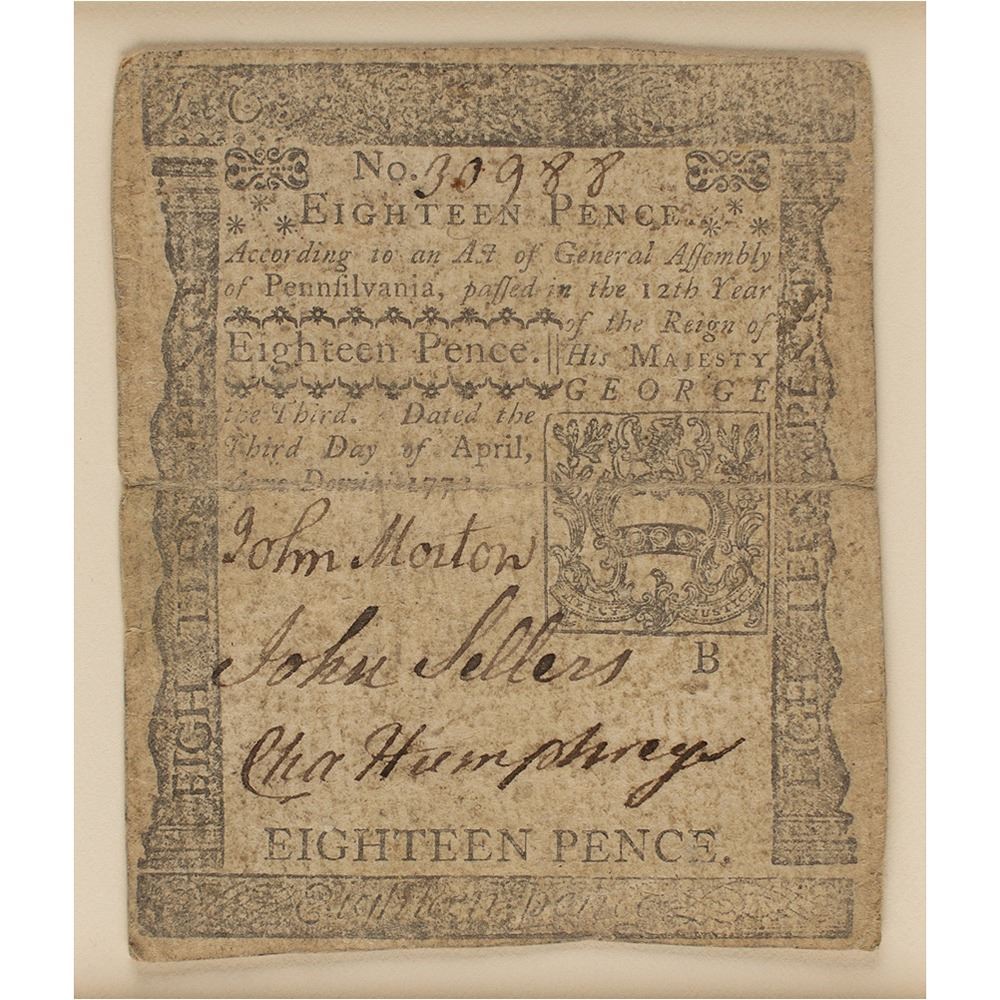 No. 30988
EIGHTEEN PENCE.
According to an Act of General Aſſembly
of Pennſilvania, paſſed in the 12th Year
of the Reign of
Eighteen Pence. His MAJESTY
GEORGE
the Third. Dated the
Third Day of April,
Anno Domini 1772.
John Morton
John Sellers
Cha Humphreys
MERCY JUSTICE
B
EIGHTEEN PENCE.
Eighteen-pence
EIGHTTEEN PENCE
EIGHTTEEN PENCE